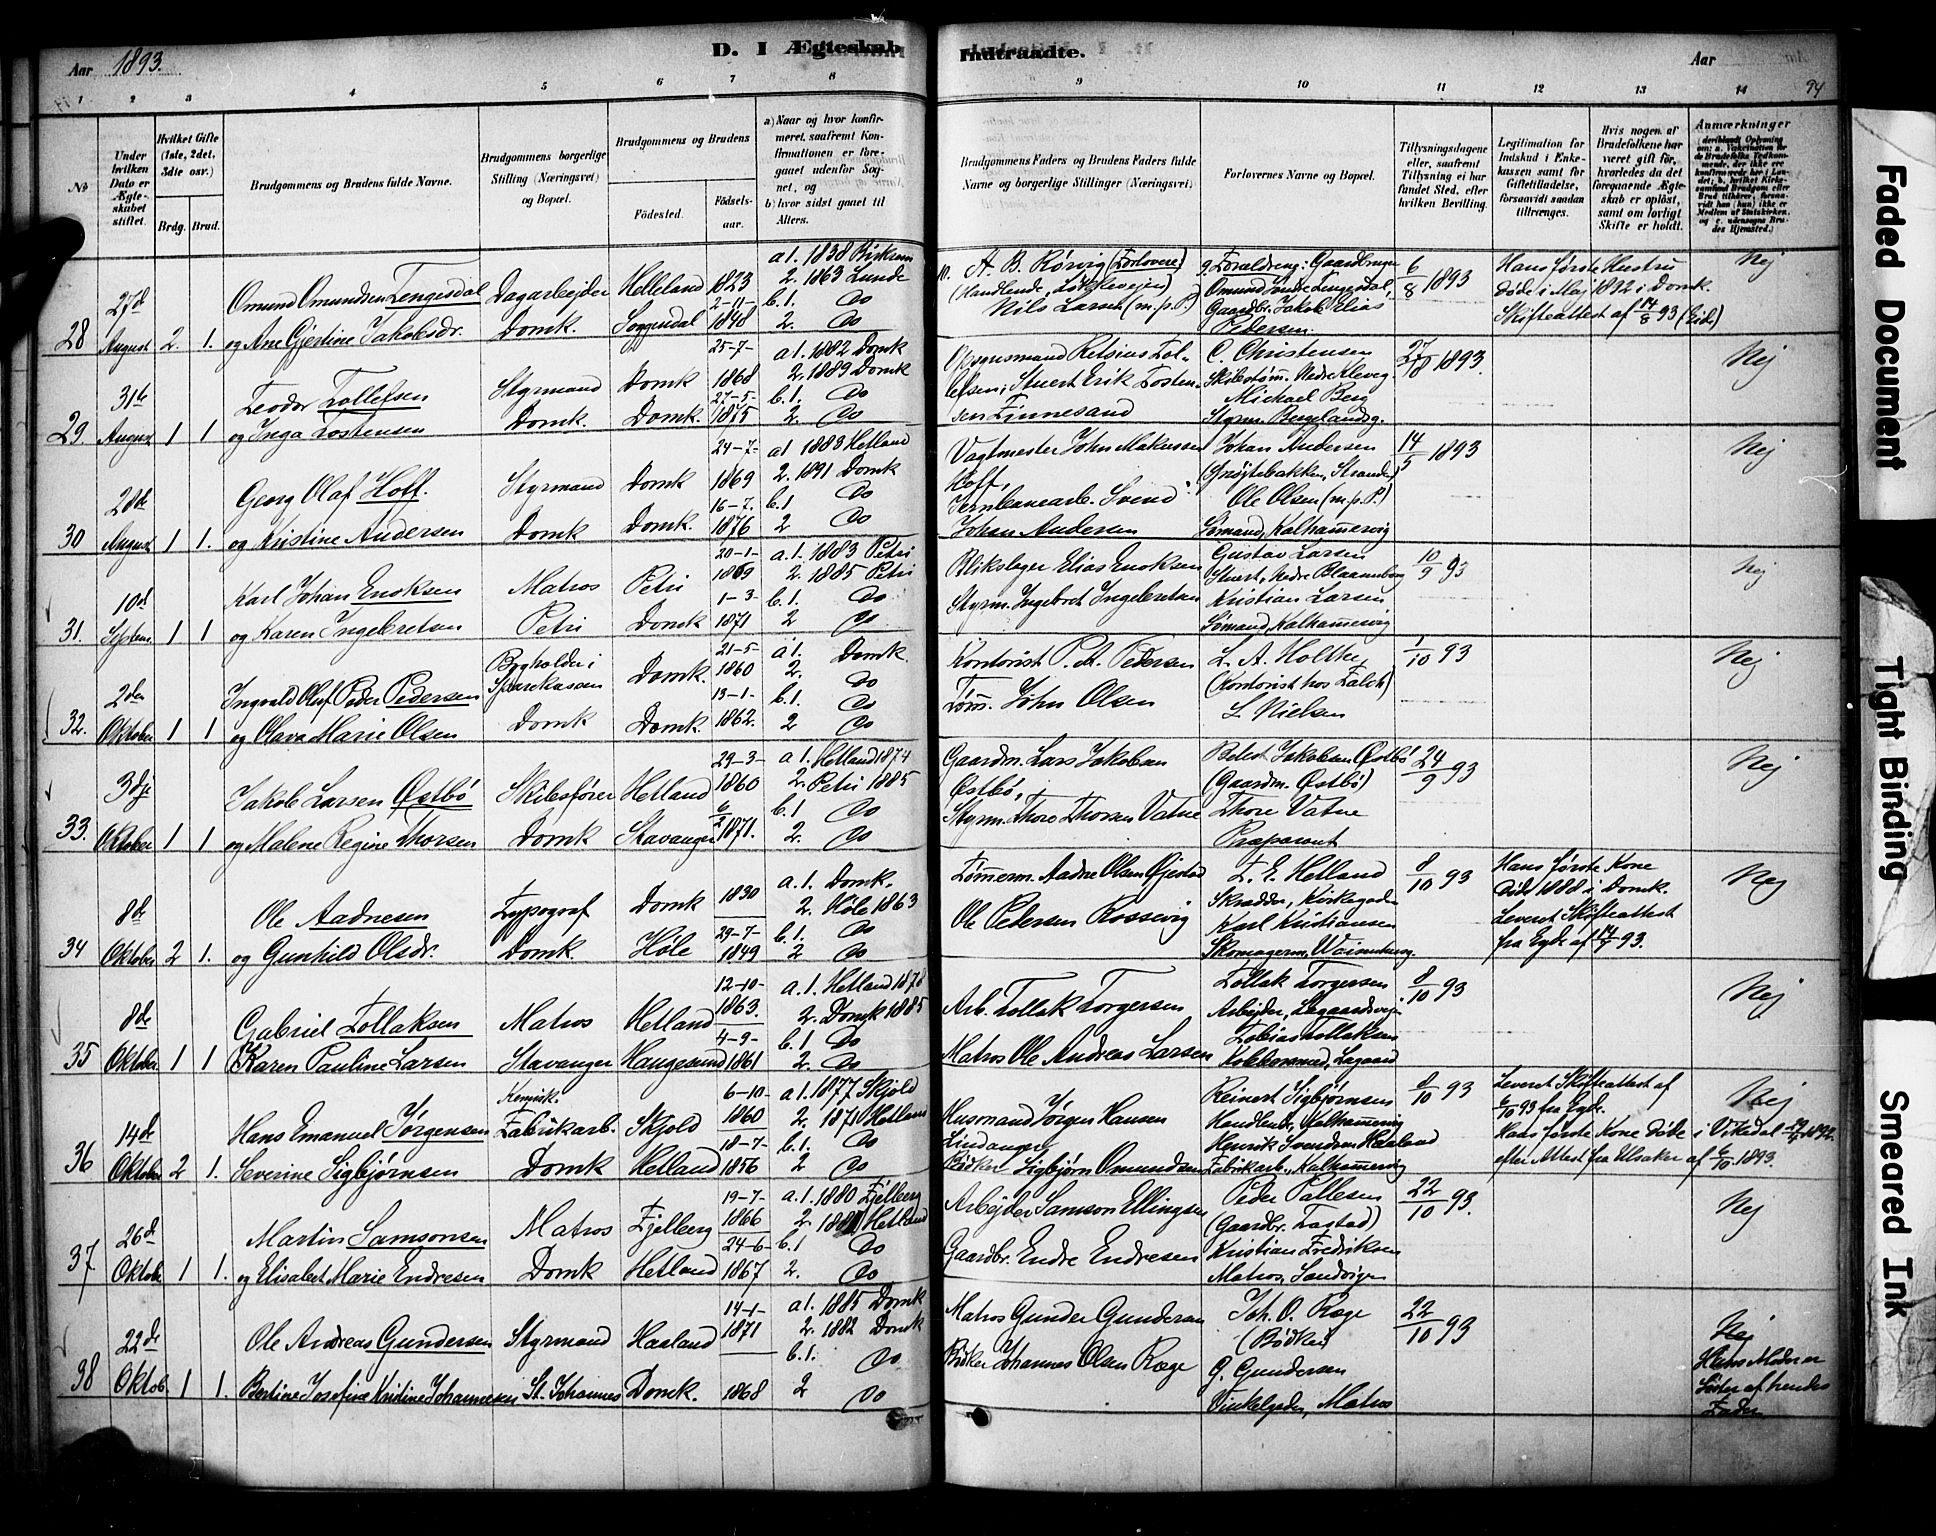 Aar 1893.
D. I Ægteskab
Indtraadte.
Aar
94
1 2 3 4 5 6 7 8 9 10 11 12 13 14
No
Under hvilken Dato er Ægteskabet stiftet.
Hvilket Gifte (1ste, 2det, 3die osv.).
Brdg. Brud.
Brudgommens og Brudens fulde Navne.
Brudgommens borgerlige Stilling (Næringsvei) og Bopæl.
Brudgommens og Brudens
Födested.
Födselsaar.
a) Naar og hvor konfirmeret, saafremt Konfirmationen er foregaaet udenfor Sognet, og
b) hvor sidst gaaet til Alters.
Brudgommens Faders og Brudens Faders fulde Navne og borgerlige Stillinger (Næringsvei)
Forlovernes Navne og Bopæl.
Tillysningsdagene eller, saafremt Tillysning ei har fundet Sted, efter hvilken Bevilling.
Legitimation for Indskud i Enkekassen samt for Giftetilladelse, forsaavidt saadan tiltrænges.
Hvis nogen af Brudefolkene har været gift før, hvorledes da det foregaaende Ægteskab er oplöst, samt om lovligt Skifte er holdt.
Anmærkninger
28 27d August 2. 1.
Omund Omundsen Tengesdal
og Ane Gjertine Jakobsdr.
Dagarbejder
Domk.
Helleland
Soggendal
1823
2-11-1848
a 1. 1838 Birksun
2. 1863 Lunde
b. 1. Do
2. Do
10. A. B. Rørvig (Forlovere)
(Handlende,
Nils Larsen (m.p.P.)
9. Forældrene: Gaardbruger
Omund Tengesdal,
Gaardbr. Jakob Elias
Pedersen.
6/8 1893
Hans første Hustru
døde i Maj 1892 i Domk.
Skifteattest af 14/8 93 (Eide)
Nej
29 31te August 1 1
Teodor Tollefsen
og Inga Tostensen
Styrmand
Domk.
Domk
Domk.
25-7-1868
27-5-1875
a 1. 1882 Domk
2. 1889 Domk
b. 1. Do
2. Do
Opsynsmand Retsius Tollefsen; Stuert Erik Tostensen Finnesand
C. Christensen
Skibstøm. Nedre Kleveg.
Michael Berg
Styrm. Bergelandsg.
27/8 1893.
Nej
30 28de August 1 1.
Georg Olaf Hoff.
og Kristine Andersen
Styrmand
Domk
Domk
Domk.
24-7-1869
16-7-1876
a 1 1883 Hetland
2. 1891 Domk
b. 1 Do
2 Do
Vagtmester John Makussen
Hoff,
Jernbanearb. Svend
Johan Andersen
Johan Andersen
(Sprøytebakken, Stranden)
Ole Olsen (m.p.P.)
Sømand, Kalhammervig
14/5 1893
Nej
31. 10d Septem. 1 1
Karl Johan Enoksen
og Karen Ingebretsen
Matros
Petri
Petri
Domk
20-1-1869
1-3-1871
a. 1. 1883 Petri
2. 1885 Petri
b. 1. Do
2 Do
Blikslager Elias Enoksen
Styrm. Ingebret Ingebretsen
Gustav Larsen
Stuert, Nedre Blaasenborg
Kristian Larsen
Sømand, Kalhammervig
10/9 93
Nej
32. 2den Oktober 1 1
Ingvald Oluf Peder Pedersen
og Olava Marie Olsen
Bogholder i
Sparekassen
Domk
Domk.
Domk.
21-5-1860
13-1-1862.
a 1. Domk.
2. Do
b. 1. Do
2 Do
Kontorist P. A. Pedersen
Tøm. John Olsen
L. A. Holthe
(Kontorist hos Falch)
L Nielsen
1/10 93
Nej
33. 3dje Oktober 1 1
Jakob Larsen Østbø
og Malene Regine Thorsen
Skibsfører
Domk
Hetland
Stavanger
29-3-1860
6/2 1871.
a 1. Hetland 1874
2. Petri 1885
b. 1 Do
2. Do
Gaardm. Lars Jakobsen
Østbø,
Styrm. Thore Thorsen Vatne
Jakobsen Østbø
(Gaardm. Østbø)
Thore Vatne
Præparant
24/9 93
Nej
34 8de Oktober 2 1.
Ole Aadnesen
og Gunhild Olsdr.
Typograf
Domk.
Domk
Høle
1830
29-7-1849
a. 1. Domk.
2. Høle 1863
b. 1. Do
2 Do
Tømmerm. Aadne Olsen Øjestad
Ole Pedersen Rossevig
T. E. Hetland
Skrædder, Kirkegaden
Karl Kristiansen
Skomagerm,
8/10 93
Hans første Kone
død 1888 i Domk.
Leveret Skifteattest
fra Egde af 14/7 93.
Nej
35 8de Oktober 1 1
Gabriel Tollaksen
Karen Pauline Larsen
Matros
Stavanger
Hetland
Haugesund
12-10-1863.
4-9-1861
a. 1. Hetland 1878
2. Domk 1885
b. 1 Do
2. Do
Arb. Tollak Torgersen
Matros Ole Andreas Larsen
Tollak Torgersen
Arbejder, Lagaardsvejen
Tobias Tollaksen
Lagaard
8/10 93
Nej
36 14de Oktober 2 1.
Hans Emanuel Jørgensen
Severine Sigbjørnsen
Fabrikarb.
Domk
Skjold
Hetland
6-10-1860
18-7-1856
a 1. 1877 Skjold
2. 1871 Hetland
b. 1. Do
2 Do
Husmand Jørgen Hansen
Lindanger
Bødker Sigbjørn Omundsen
Reinert Sigbjørnsen
Handlende, Kalhammervig
Henrik Svendsen Haaland
Fabrikarb., Kalhammervig
8/10 93
Leveret Skifteattest af
6/10 93 fra Egde.
Hans første Kone døde i Vikedal 1892.
efter Attest fra Ulsaker af 6/10 1893.
Nej
37 26de Oktobr 1 1.
Martin Samsonsen
og Elisabet Marie Endresen
Matros
Domk
Fjelberg
Hetland
19-7-1866
24-6-1867
a. 1. 1880 Fjelberg
2. 1881 Hetland
b. 1 Do
2. Do
Arbejder Samson Ellingsen
Gaardbr. Endre Endresen
Peder Pallesen
(Gaardbr. Tastad)
Kristian Fredriksen
Matros, Sandvigen
22/10 93.
Nej
38 22de Oktob. 1 1.
Ole Andreas Gundersen
Bertine Josefine Kristine Johannesen
Styrmand
St. Johannes
Haaland
Domk.
14-1-1871
1868
a 1. 1885 Domk
2. 1882 Domk
b. 1. Do
2 Do
Matros Gunder Gundersen
Bødker Johannes Olsen Ræge
Joh. O. Ræge
(Bødker)
G. Gundersen
Vinkelgaden, Matros
22/10 93
Nej
Hans Moder er
Søster af hendes
Fader
Faded Document
Tight Binding
Smeared Ink